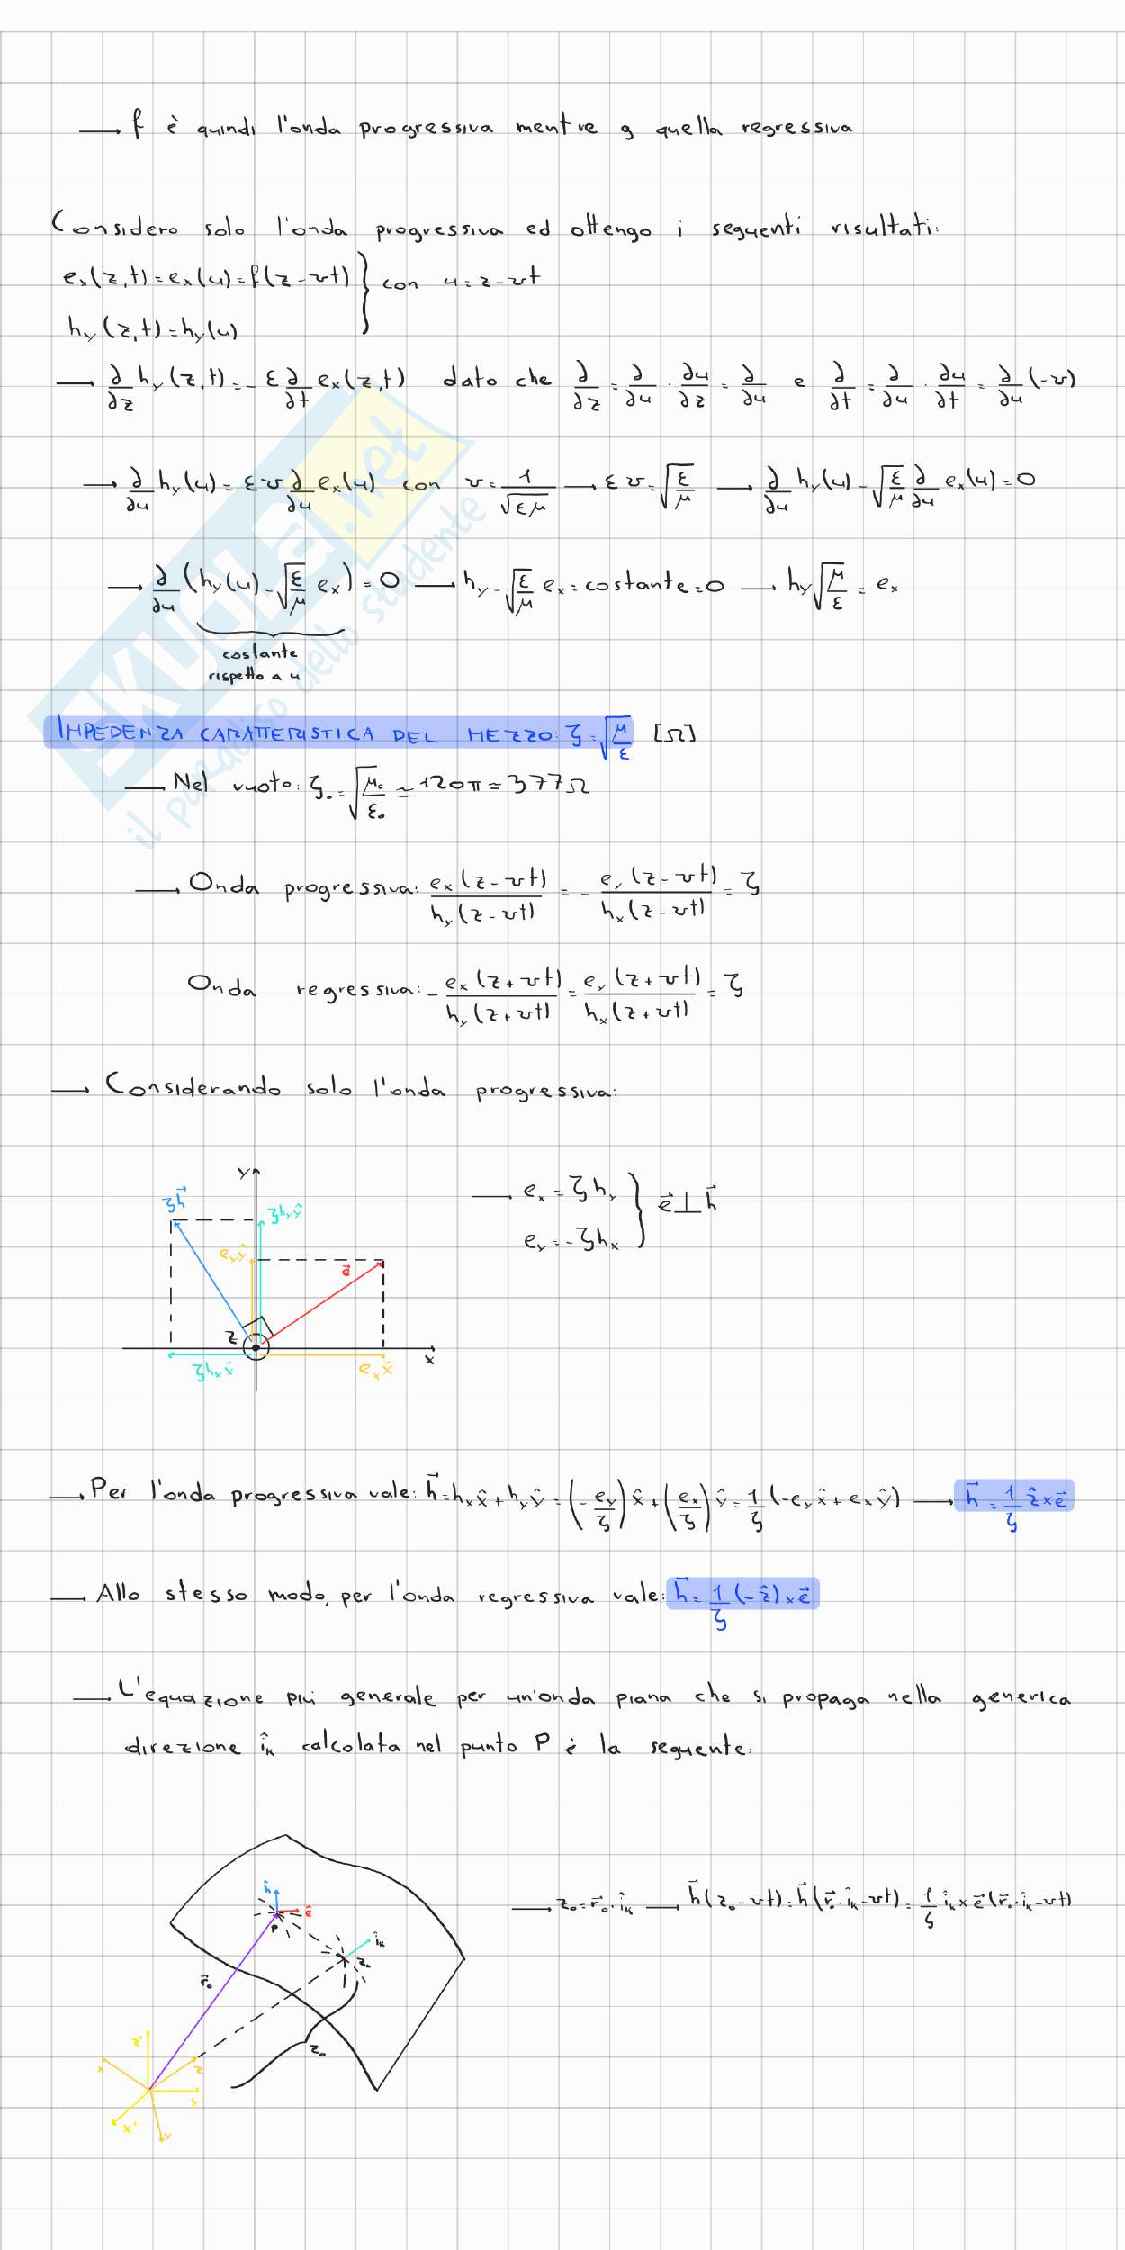 → f è quindi l'onda progressiva mentre g quella regressiva
Considero solo l'onda progressiva ed ottengo i seguenti risultati:
eₓ(z,t)=eₓ(u)=f(z-vt) } con u=z-vt
hᵧ(z,t)=hᵧ(u)
→ ∂/∂z hᵧ(z,t)=-ε ∂/∂t eₓ(z,t) dato che ∂/∂z = ∂/∂u · ∂u/∂z = ∂/∂u e ∂/∂t = ∂/∂u · ∂u/∂t = ∂/∂u (-v)
→ ∂/∂u hᵧ(u)= εv ∂/∂u eₓ(u) con v= 1/√(εμ) → εv=√(ε/μ) → ∂/∂u hᵧ(u)-√(ε/μ) ∂/∂u eₓ(u)=0
→ ∂/∂u (hᵧ(u)-√(ε/μ) eₓ)=0 → hᵧ-√(ε/μ) eₓ=costante=0 → hᵧ√(μ/ε) = eₓ
costante
rispetto a u
IMPEDENZA CARATTERISTICA DEL MEZZO: ζ=√(μ/ε) [Ω]
→ Nel vuoto: ζ₀=√(μ₀/ε₀) ≃ 120π ≃ 377Ω
→ Onda progressiva: eₓ(z-vt)/hᵧ(z-vt) = - eᵧ(z-vt)/hₓ(z-vt) = ζ
Onda regressiva: - eₓ(z+vt)/hᵧ(z+vt) = eᵧ(z+vt)/hₓ(z+vt) = ζ
→ Considerando solo l'onda progressiva:
y
ζh⃗
ζhᵧŷ
eᵧŷ
e⃗
z
x
ζhₓx̂
eₓx̂
→ eₓ=ζhᵧ } e⃗⊥h⃗
eᵧ=-ζhₓ
→ Per l'onda progressiva vale: h⃗=hₓx̂+hᵧŷ=(-eᵧ/ζ)x̂+(eₓ/ζ)ŷ=1/ζ(-eᵧx̂+eₓŷ) → h⃗=1/ζ ẑ×e⃗
→ Allo stesso modo, per l'onda regressiva vale: h⃗=1/ζ(-ẑ)×e⃗
→ L'equazione più generale per un'onda piana che si propaga nella generica
direzione îₖ calcolata nel punto P è la seguente:
h⃗
e⃗
P
îₖ
z₀
r⃗₀
z₀
→ z₀=r⃗₀·îₖ → h⃗(z₀-vt)=h⃗(r⃗₀·îₖ-vt)=1/ζ îₖ×e⃗(r⃗₀·îₖ-vt)
z'
x
z
x'
y
SKUOLA.net
il paradiso dello studente